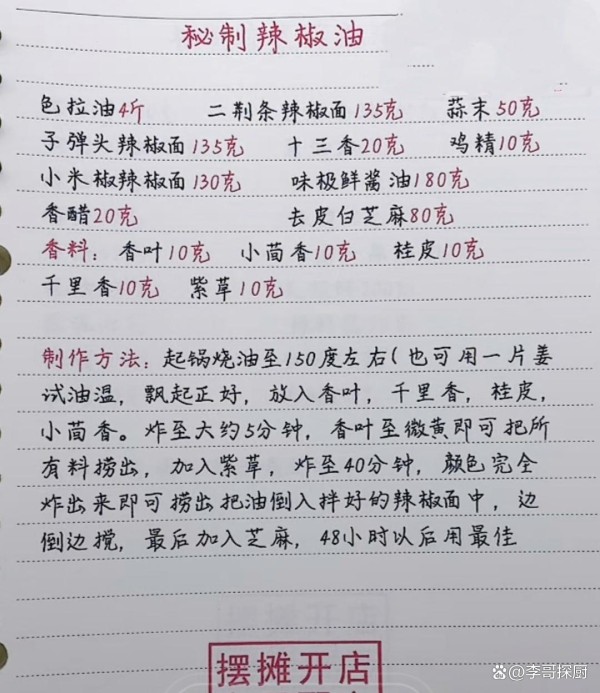 秘制辣椒油
色拉油4斤 二荆条辣椒面135克 蒜末50克
子弹头辣椒面135克 十三香20克 鸡精10克
小米椒辣椒面130克 味极鲜酱油180克
香醋20克 去皮白芝麻80克
香料：香叶10克 小茴香10克 桂皮10克
千里香10克 紫草10克
制作方法：起锅烧油至150度左右(也可用一片姜
试油温，飘起正好，放入香叶，千里香，桂皮，
小茴香。炸至大约5分钟，香叶至微黄即可把所
有料捞出，加入紫草，炸至40分钟，颜色完全
炸出来即可捞出把油倒入拌好的辣椒面中，边
倒边搅，最后加入芝麻，48小时以后用最佳
摆摊开店
李哥探厨